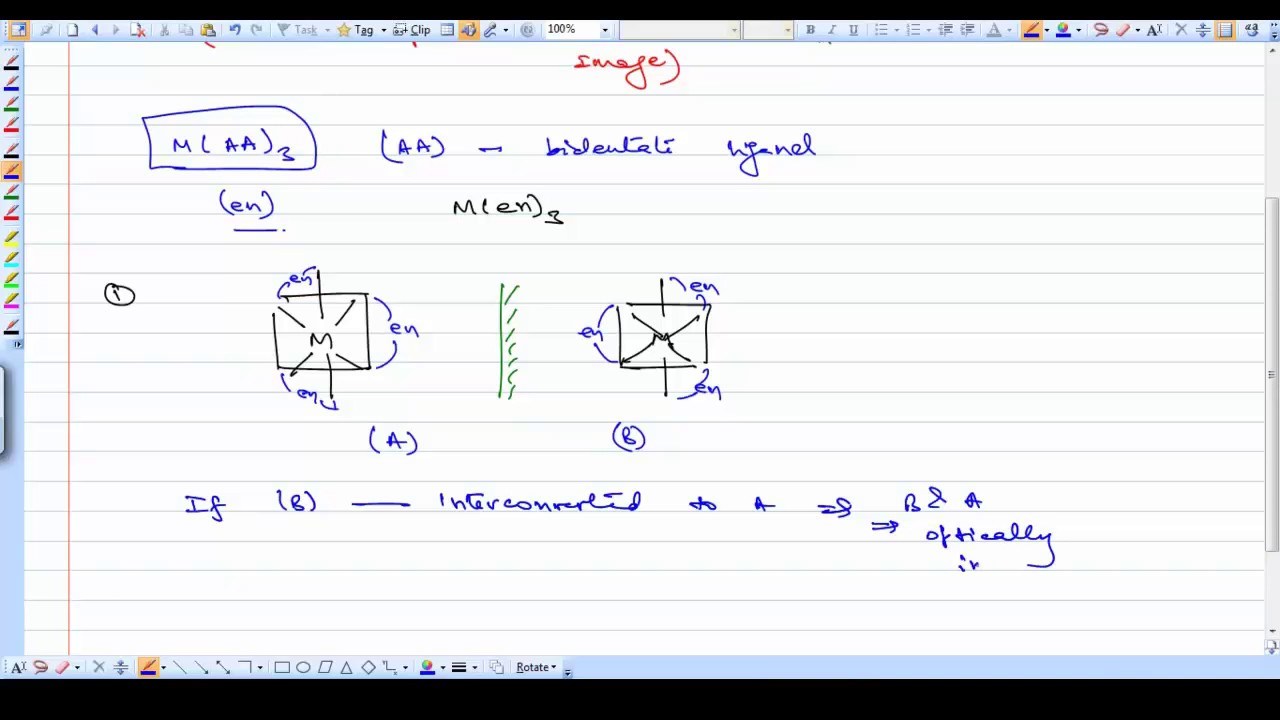 Task Tag Clip 100% B I U
Image)
M(AA)3 (AA) — bidentate ligand
(en) M(en)3
① en en en M en en en M
(A) (B)
If (B) — interconverted to A ⇒ B & A
⇒ optically
in
Rotate